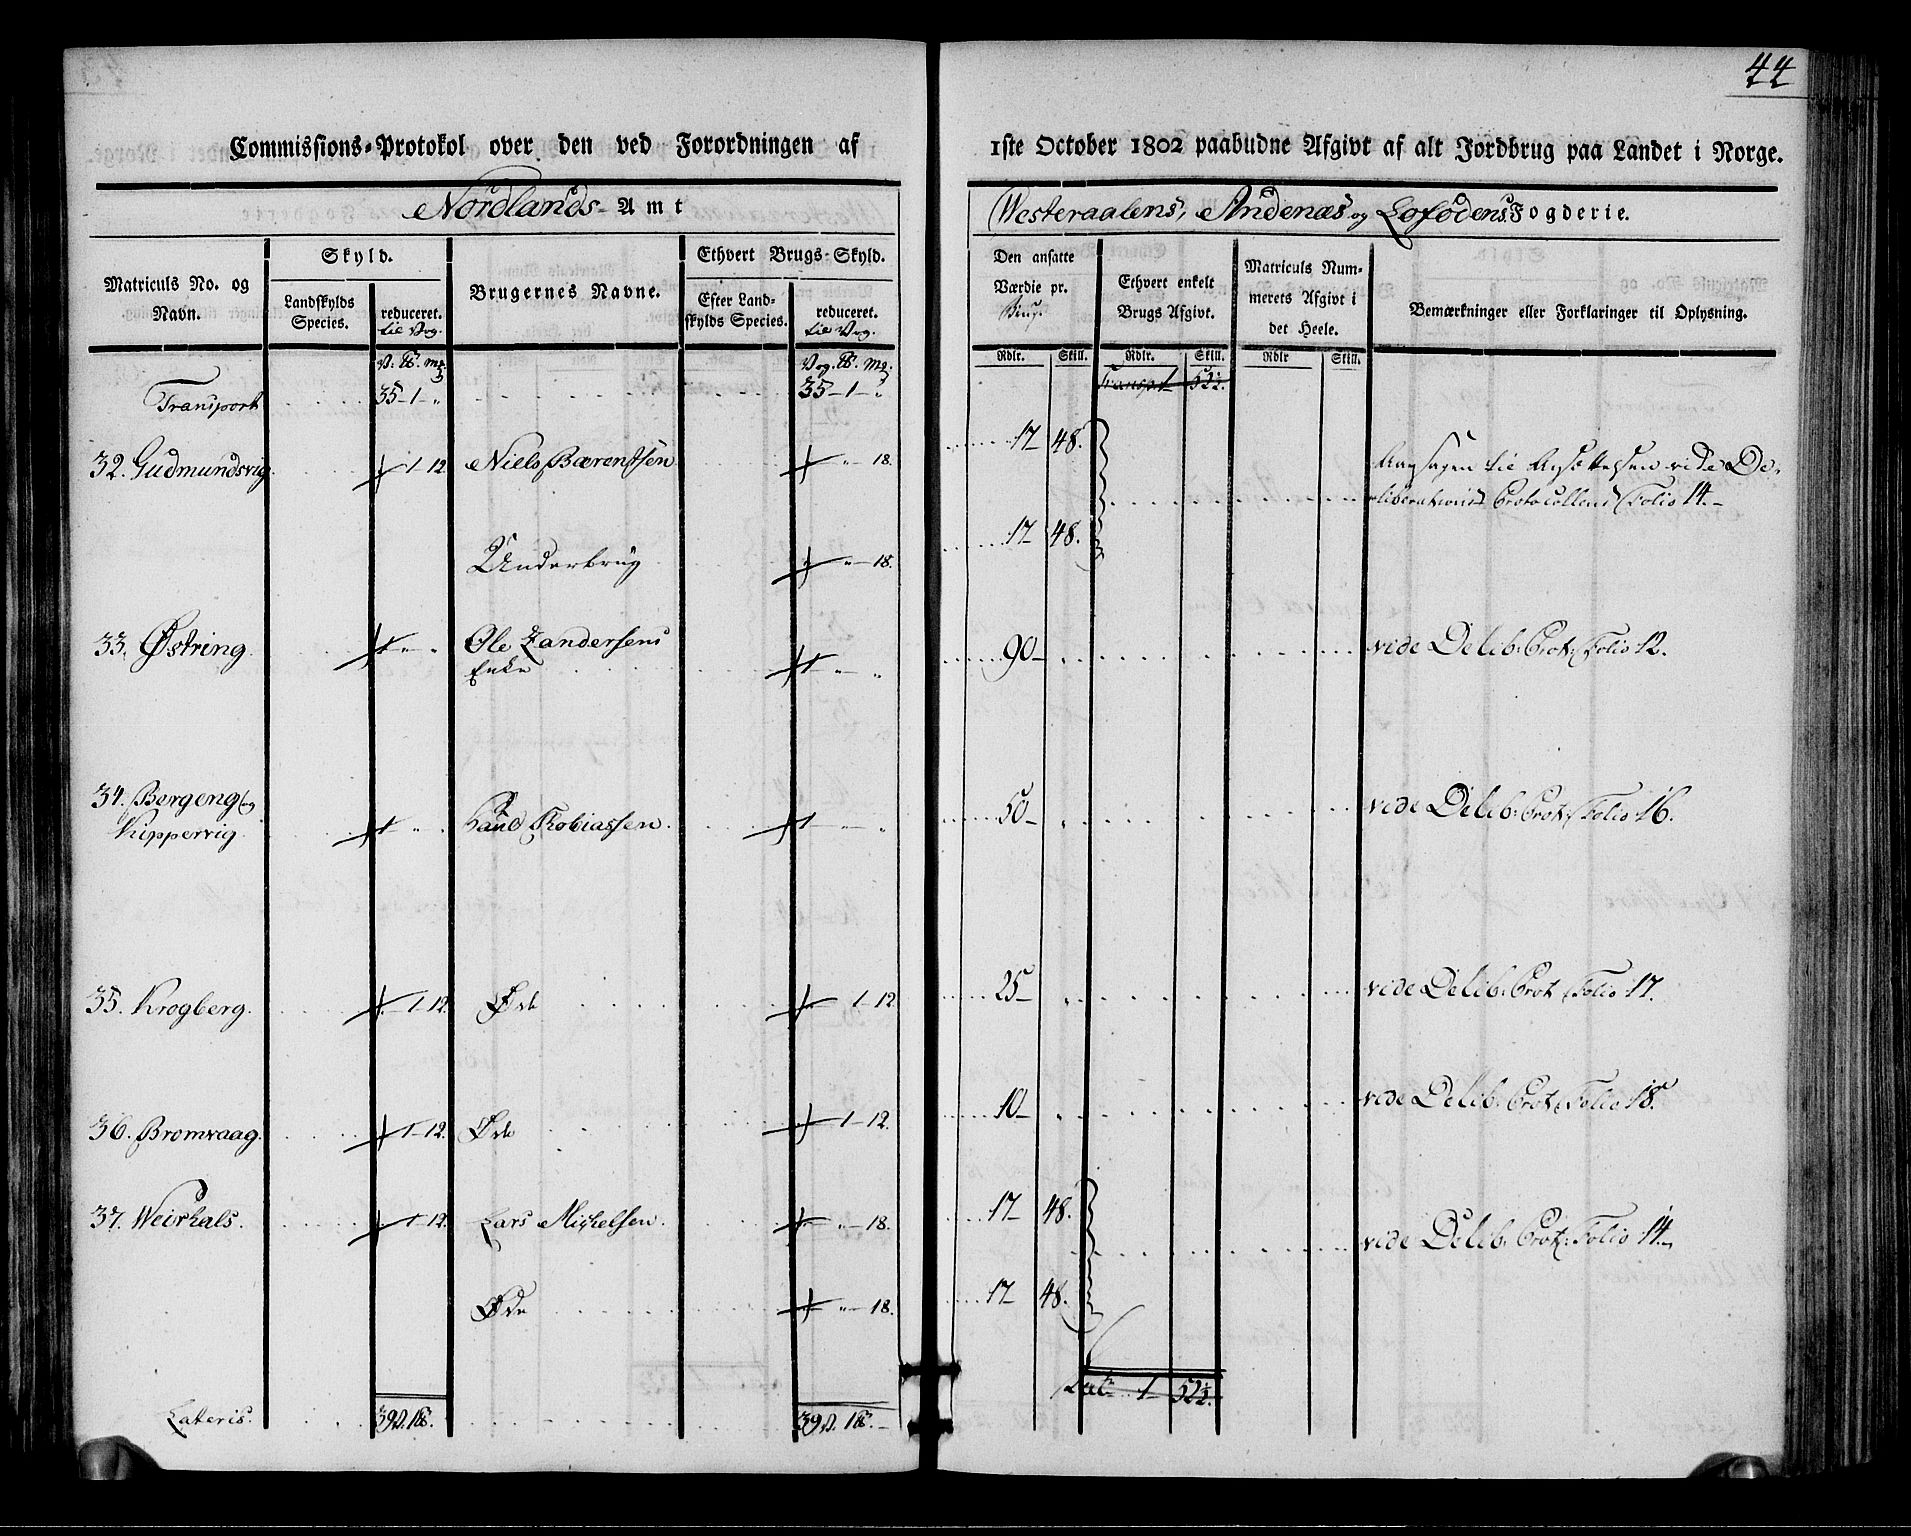 44
Commissions-Protokol over den ved Forordningen af
1ste October 1802 paabudne Afgivt af alt Jordbrug paa Landet i Norge.
Nordlands-Amt
Westeraalens, Andenæs og Lofodens Fogderie.
Matriculs No. og Navn.
Skyld.
Landskylds Species.
reduceret. til Vog.
Brugernes Navne.
Ethvert Brugs-Skyld.
Efter Landskylds Species.
reduceret. til Vog.
Den ansatte Værdie pr. Brug.
Ethvert enkelt Brugs Afgivt.
Matriculs Nummerets Afgivt i det Heele.
Bemærkninger eller Forklaringer til Oplysning.
Rdlr. Skill. Rdlr. Skill. Rdlr Skill.
Transport 35-1-„ 35-1-„ Transpt 1- 52½.
32. Gudmundsvig 1-12. Niels Bærentsen „-18. 17- 48. Aarsagen til Ansættelsen vide De-
liberations Protocollens Folio 14.-
Underbrug „-18. 17- 48.
33. Østring 1 „ „ Ole Zandersens
Enke 1 „ „ 90- „ vide Delib: Prot: Folio 12.
34. Bergeng og
Kippervig 1 „ „ Tobiassen 1 „ 50- „ vide Delib: Prot: Folio 16.
35. Krogberg. 1-12. Øde 1-12. 25- „ vide Delib: Prot Folio 17.
36. Bromvaag. 1-12. Øde 1-12. 10- „ vide Delib: Prot: Folio 18.
37. Weirhals. 1-12. Lars Michelsen „-18. 17- 48. vide Delib: Prot: Folio 14.
Øde „-18. 17- 48.
Lat: 1- 52½.
Lateris. 39 V. 1 39 V. 1